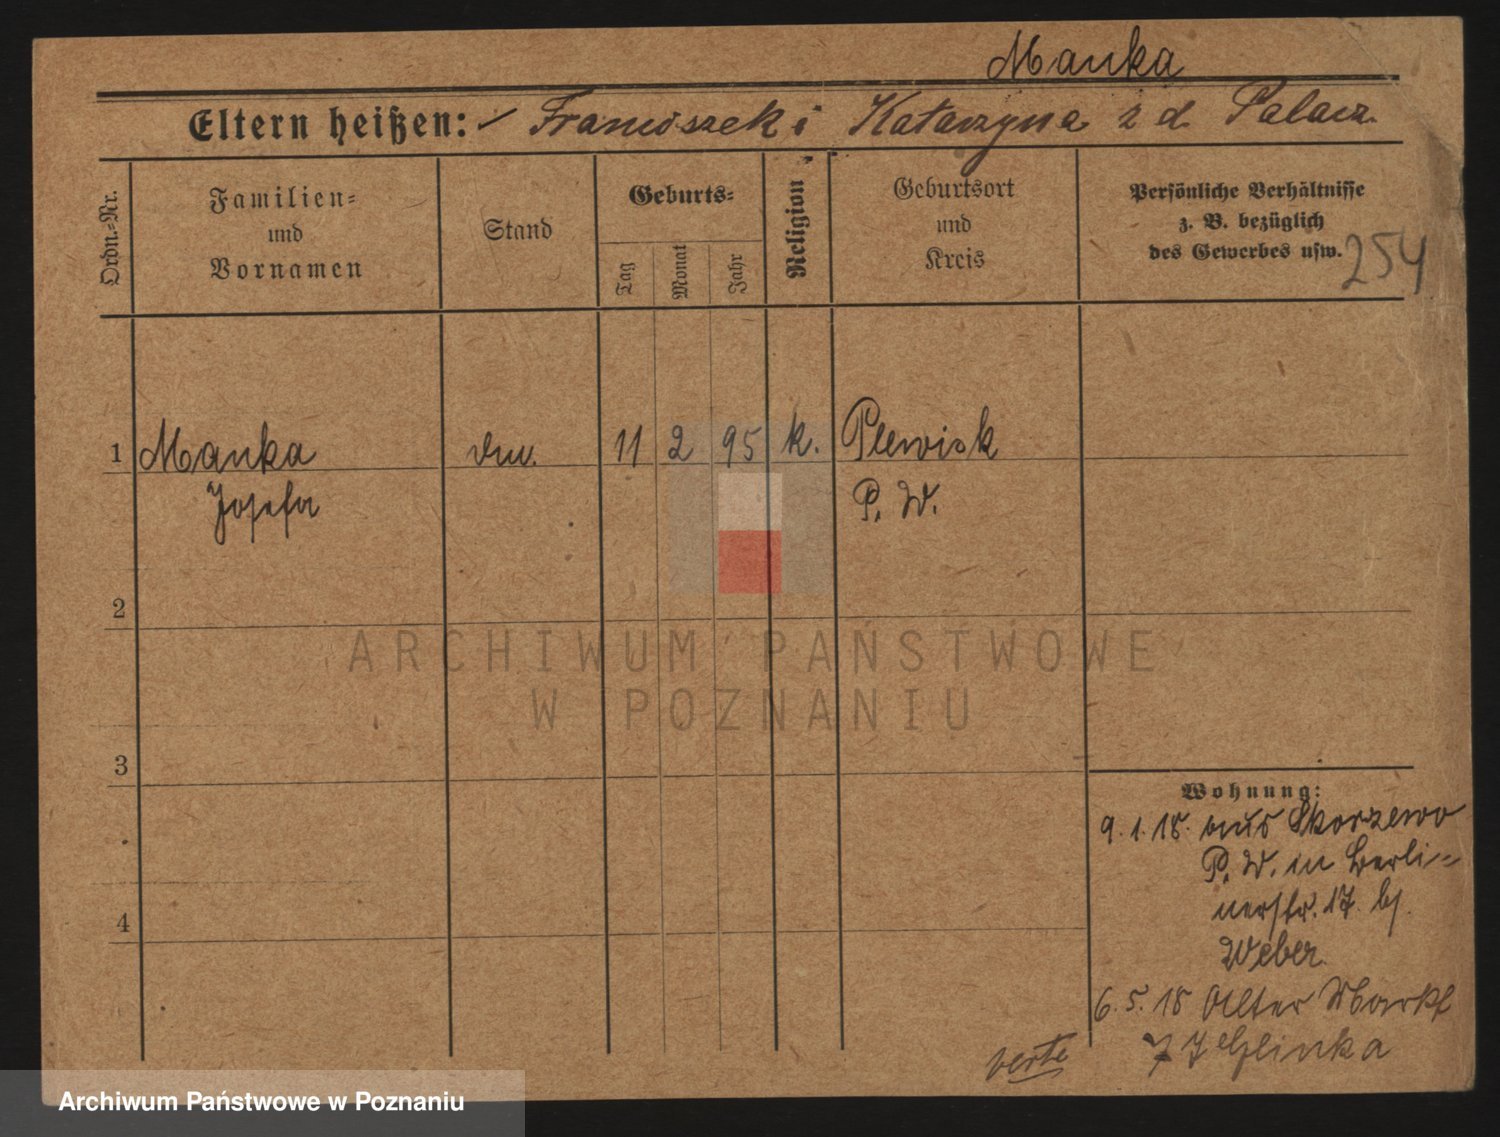 Manka
Eltern heißen: Franciszek i Katarzyna z d. Palacz.
Ordn.-Nr.
Familien-
und
Vornamen
Stand
Geburts-
Tag
Monat
Jahr
Religion
Geburtsort
und
Kreis
Persönliche Verhältnisse
z. B. bezüglich
des Gewerbes usw.
254
1 Manka 11 2 95 k. Plewisk
Josefa P. W.
2
3
4
Wohnung:
9.1.18. aus Skorzewo
P. W. in Berli-
nerstr. 17. bj.
Weber.
6.5.18 Alter Markt
7 Glinka
verte
ARCHIWUM PAŃSTWOWE
W POZNANIU
Archiwum Państwowe w Poznaniu